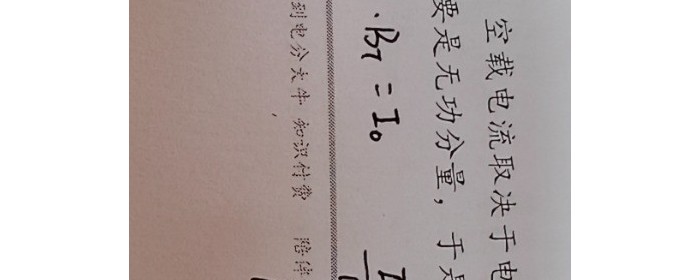 空载电流取决于电
要是无功分量，于是
·B_T = I_0
到电分大牛 知识付费 陪伴